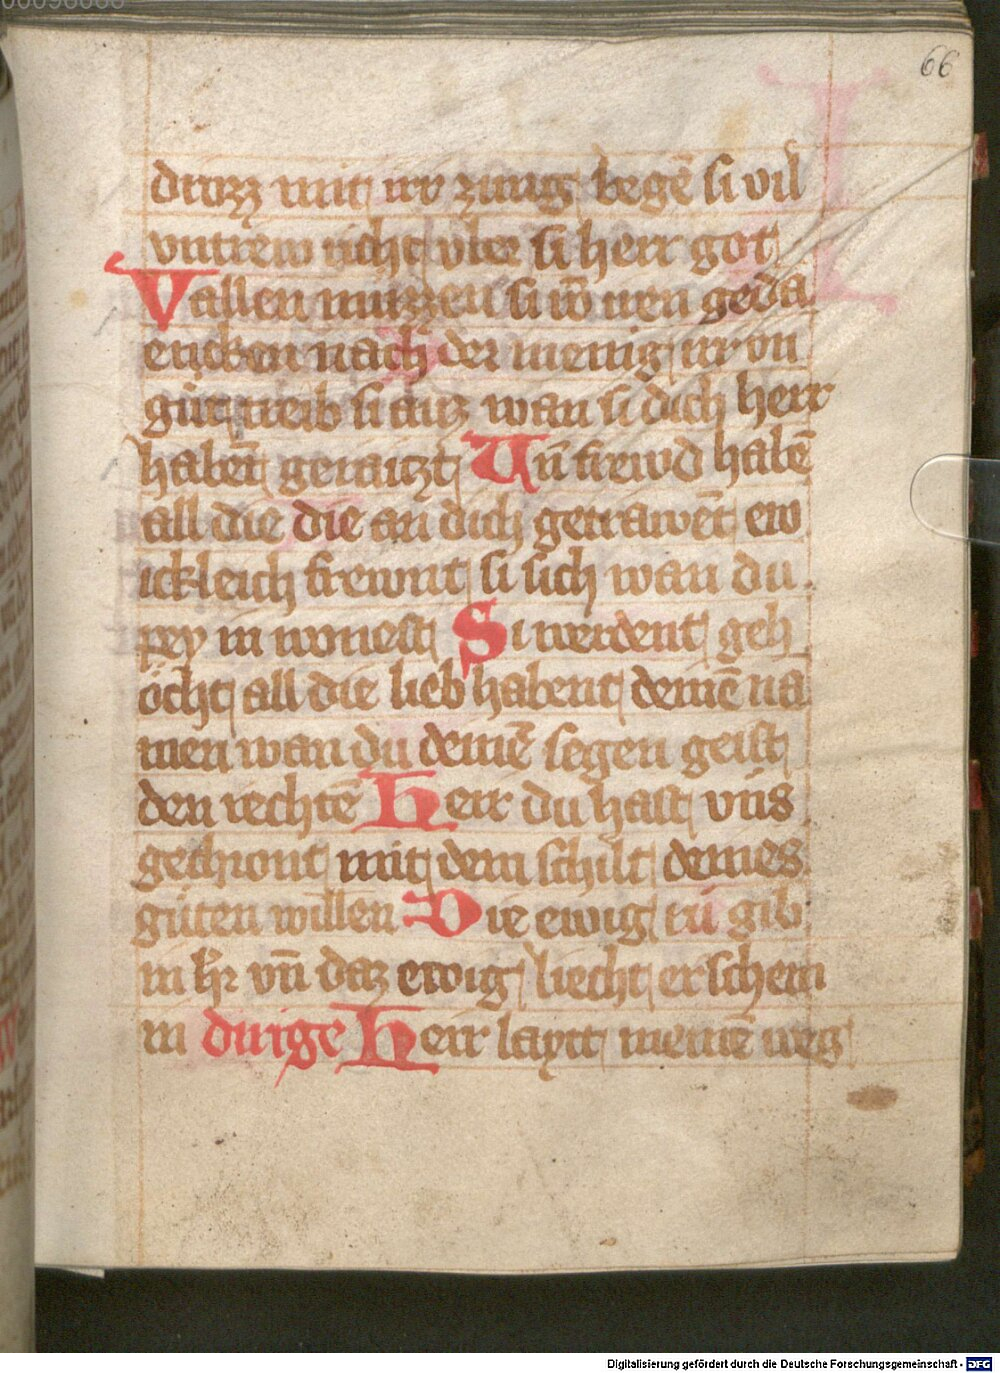 66
drozz mit irr zung begē si vil
vntrew richt vber si herr got
Vallen muzzen si vō iren geda
encken nach der menig irr vn
güt treib si auz wan si dich herr
habēt geraitzt Uñ frewd habē
all die die an dich getrawēt ew
ickleich frewnt si sich wan du
pey in wonest Si werdent geh
öcht all die lieb habent deinē na
men wan du deinē segen geist
den rechtē Herr du hast vns
gechront mit dem schilt deines
güten willen Die ewig rů gib
in hr vñ daz ewig liecht erschein
in dirige Herr laytt meinē weg
Digitalisierung gefördert durch die Deutsche Forschungsgemeinschaft - DFG